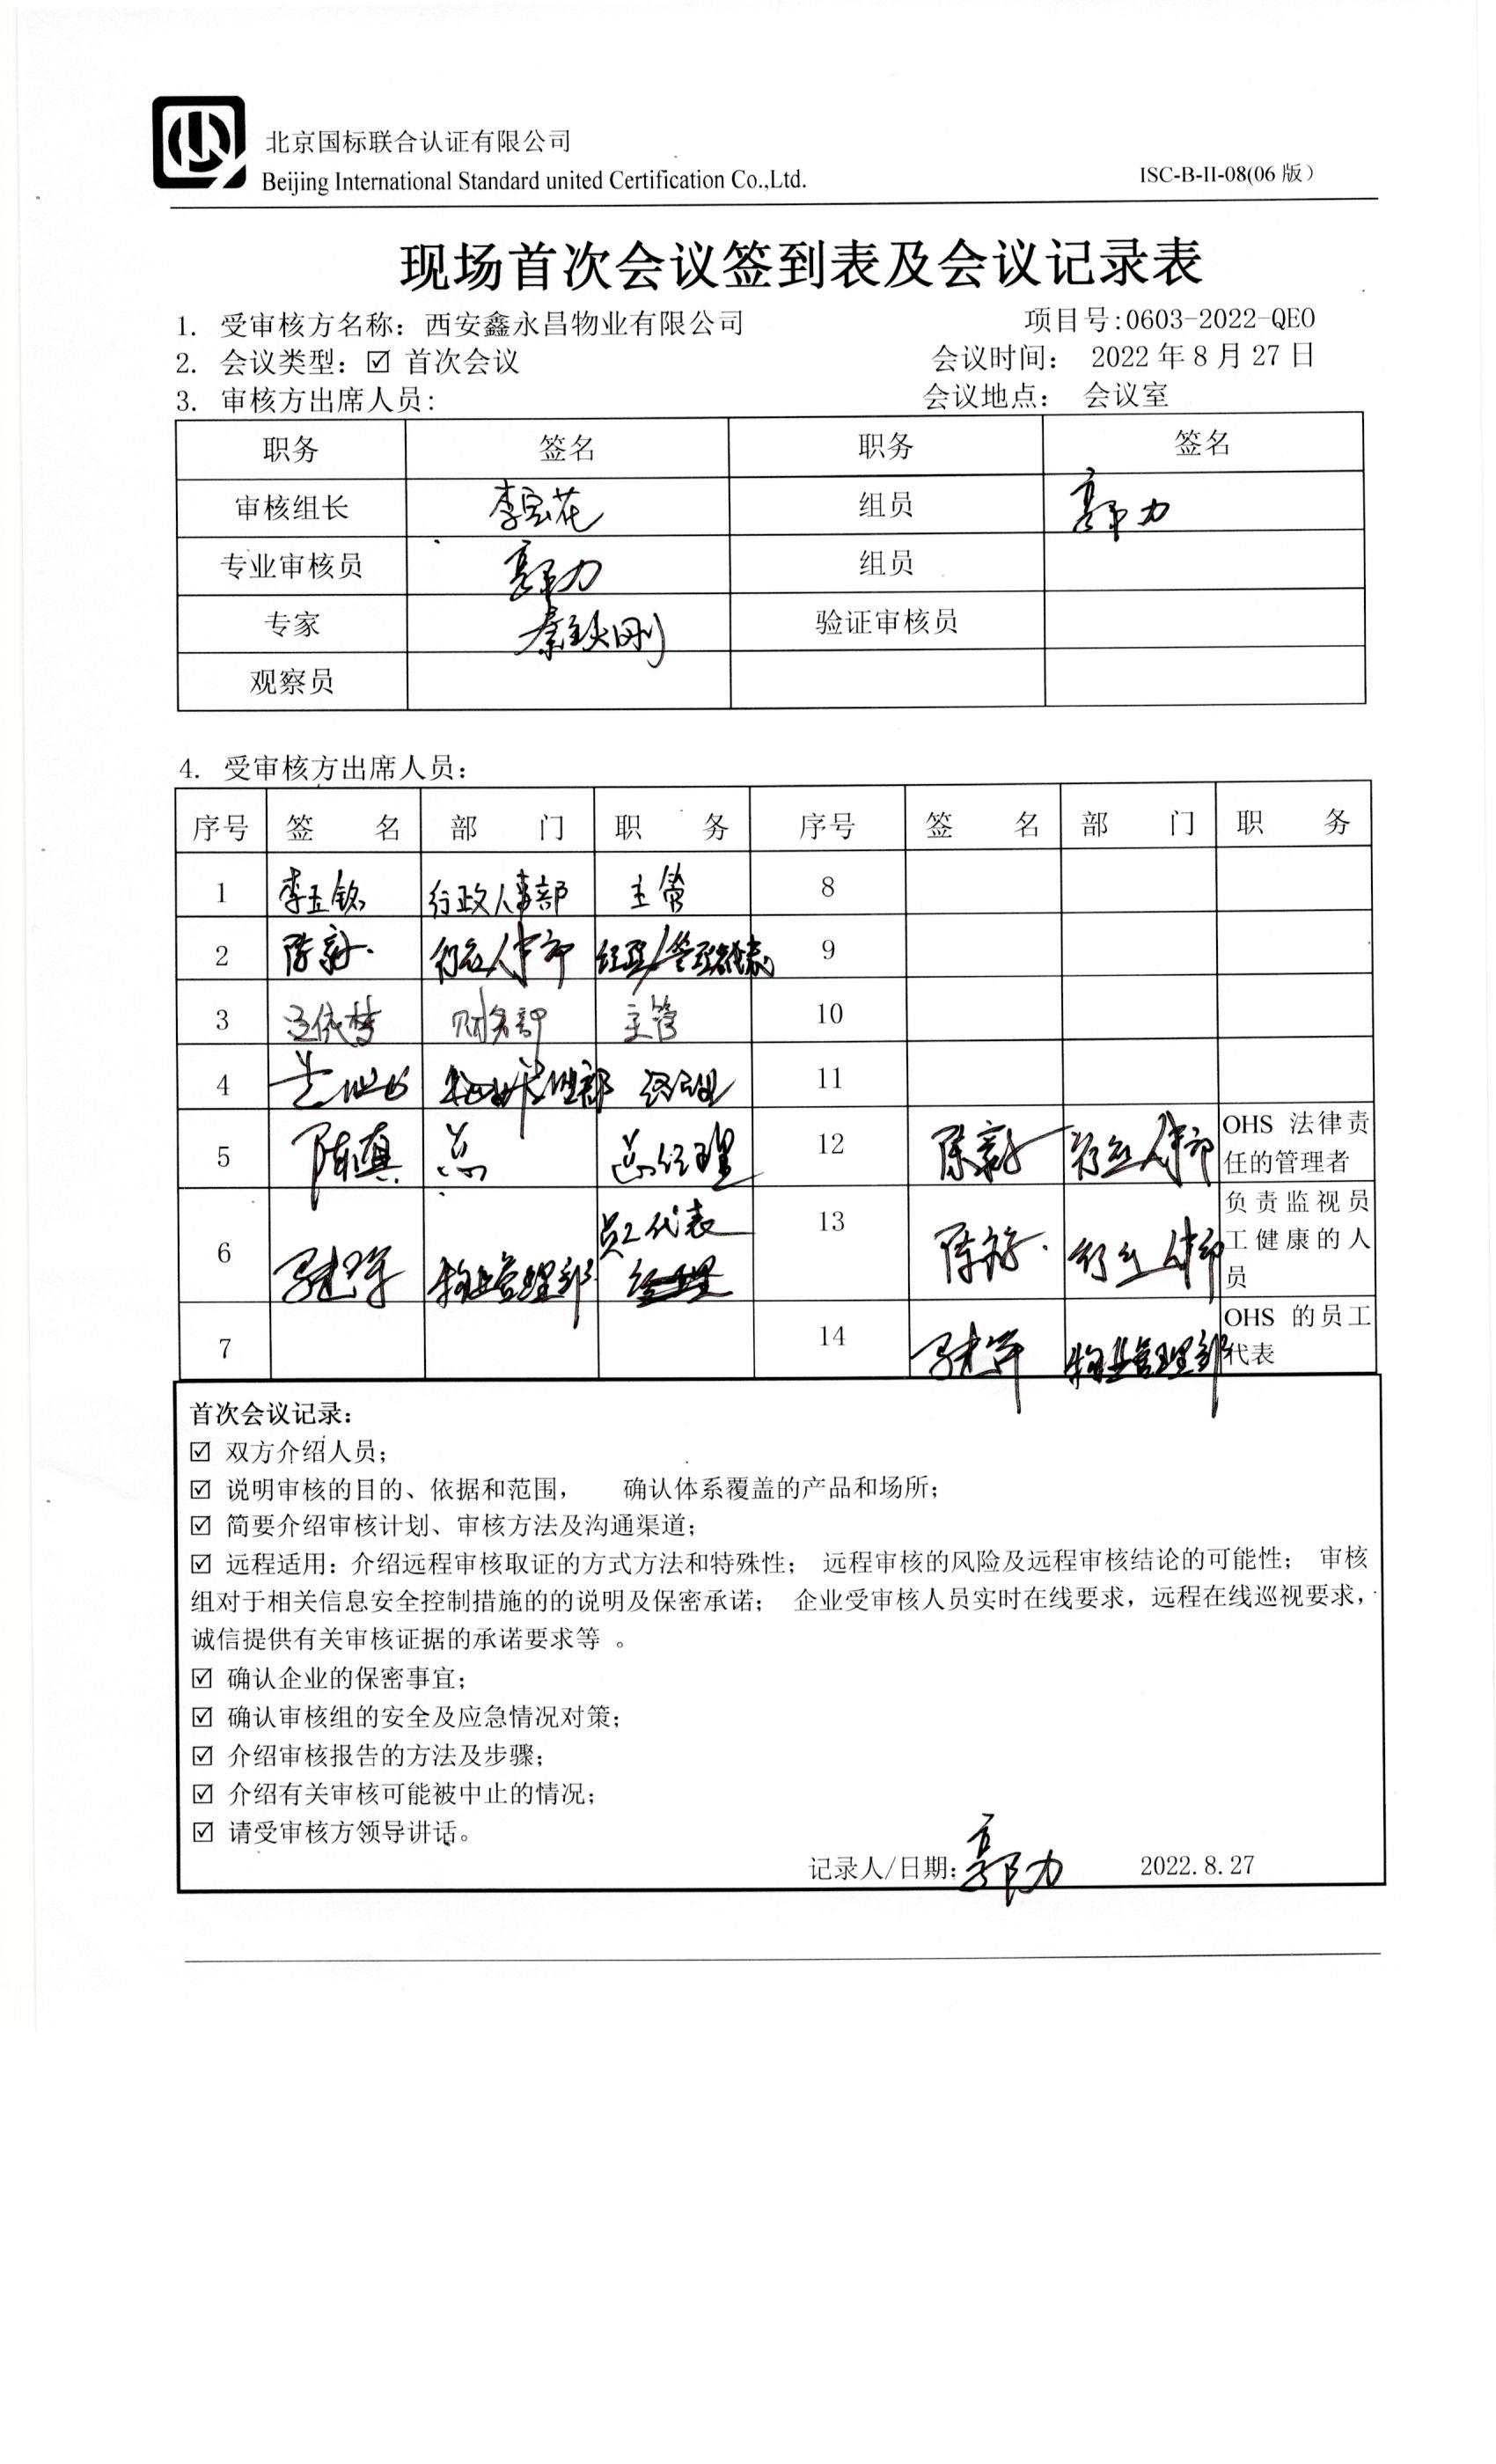 北京国标联合认证有限公司
Beijing International Standard united Certification Co.,Ltd.
ISC-B-II-08(06版)
现场首次会议签到表及会议记录表
1. 受审核方名称：西安鑫永昌物业有限公司 项目号:0603-2022-QEO
2. 会议类型：☑ 首次会议 会议时间： 2022年8月27日
3. 审核方出席人员： 会议地点： 会议室
职务 签名 职务 签名
审核组长 李宝花 组员 郭力
专业审核员 郭力 组员
专家 秦铁刚 验证审核员
观察员
4. 受审核方出席人员：
序号 签 名 部 门 职 务 序号 签 名 部 门 职 务
1 李五铭 行政人事部 主管 8
2 陈新 行政人事部 经理/管理代表 9
3 依梦 财务部 主管 10
4 物业管理部 经理 11
5 陈真 总 总经理 12 陈新 行政人事部 OHS 法律责
任的管理者
6 建军 物业管理部 员工代表 13 陈新 行政人事部 负责监视员
工健康的人
员
7 14 建军 物业管理部 OHS 的员工
代表
首次会议记录：
☑ 双方介绍人员；
☑ 说明审核的目的、依据和范围， 确认体系覆盖的产品和场所；
☑ 简要介绍审核计划、审核方法及沟通渠道；
☑ 远程适用：介绍远程审核取证的方式方法和特殊性； 远程审核的风险及远程审核结论的可能性； 审核
组对于相关信息安全控制措施的的说明及保密承诺； 企业受审核人员实时在线要求，远程在线巡视要求，
诚信提供有关审核证据的承诺要求等 。
☑ 确认企业的保密事宜；
☑ 确认审核组的安全及应急情况对策；
☑ 介绍审核报告的方法及步骤；
☑ 介绍有关审核可能被中止的情况；
☑ 请受审核方领导讲话。
记录人/日期：郭力 2022.8.27